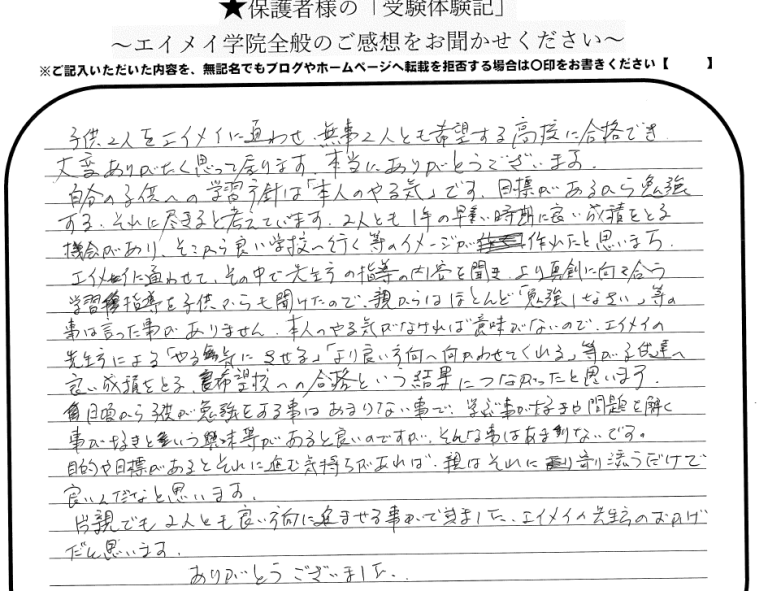 ★保護者様の「受験体験記」
～エイメイ学院全般のご感想をお聞かせください～
※ご記入いただいた内容を、無記名でもブログやホームページへ転載を拒否する場合は〇印をお書きください【　　】
子供2人をエイメイに通わせ、無事2人とも希望する高校に合格でき
大変ありがたく思って居ります。本当にありがとうございます。
自分の子供への学習方針は「本人のやる気」です。目標があるから勉強
する、それに尽きると考えています。2人とも1年の早い時期に良い成績をとる
機会があり、そこから良い学校へ行く等のイメージが作れたと思います。
エイメイに通わせて、その中で先生方の指導の内容を聞き、より真剣に向き合う
学習指導を子供からも聞けたので、親からはほとんど「勉強しなさい」等の
事は言った事がありません。本人のやる気がなければ意味がないので、エイメイの
先生方による「やる気にさせる」「より良い方向へ向かわせてくれる」等が子供達へ
良い成績をとる、希望校への合格という結果につながったと思います。
日頃から子供が勉強をする事はあまりない事で、学ぶ事が好きや問題を解く
事が好きという興味等があると良いのですが、そんな事はあまりないです。
目的や目標があるとそれに進む気持ちがあれば、親はそれに寄り添うだけで
良いんだなと思います。
片親でも2人とも良い方向に進ませる事ができました。エイメイの先生方のおかげ
だと思います。
ありがとうございました。